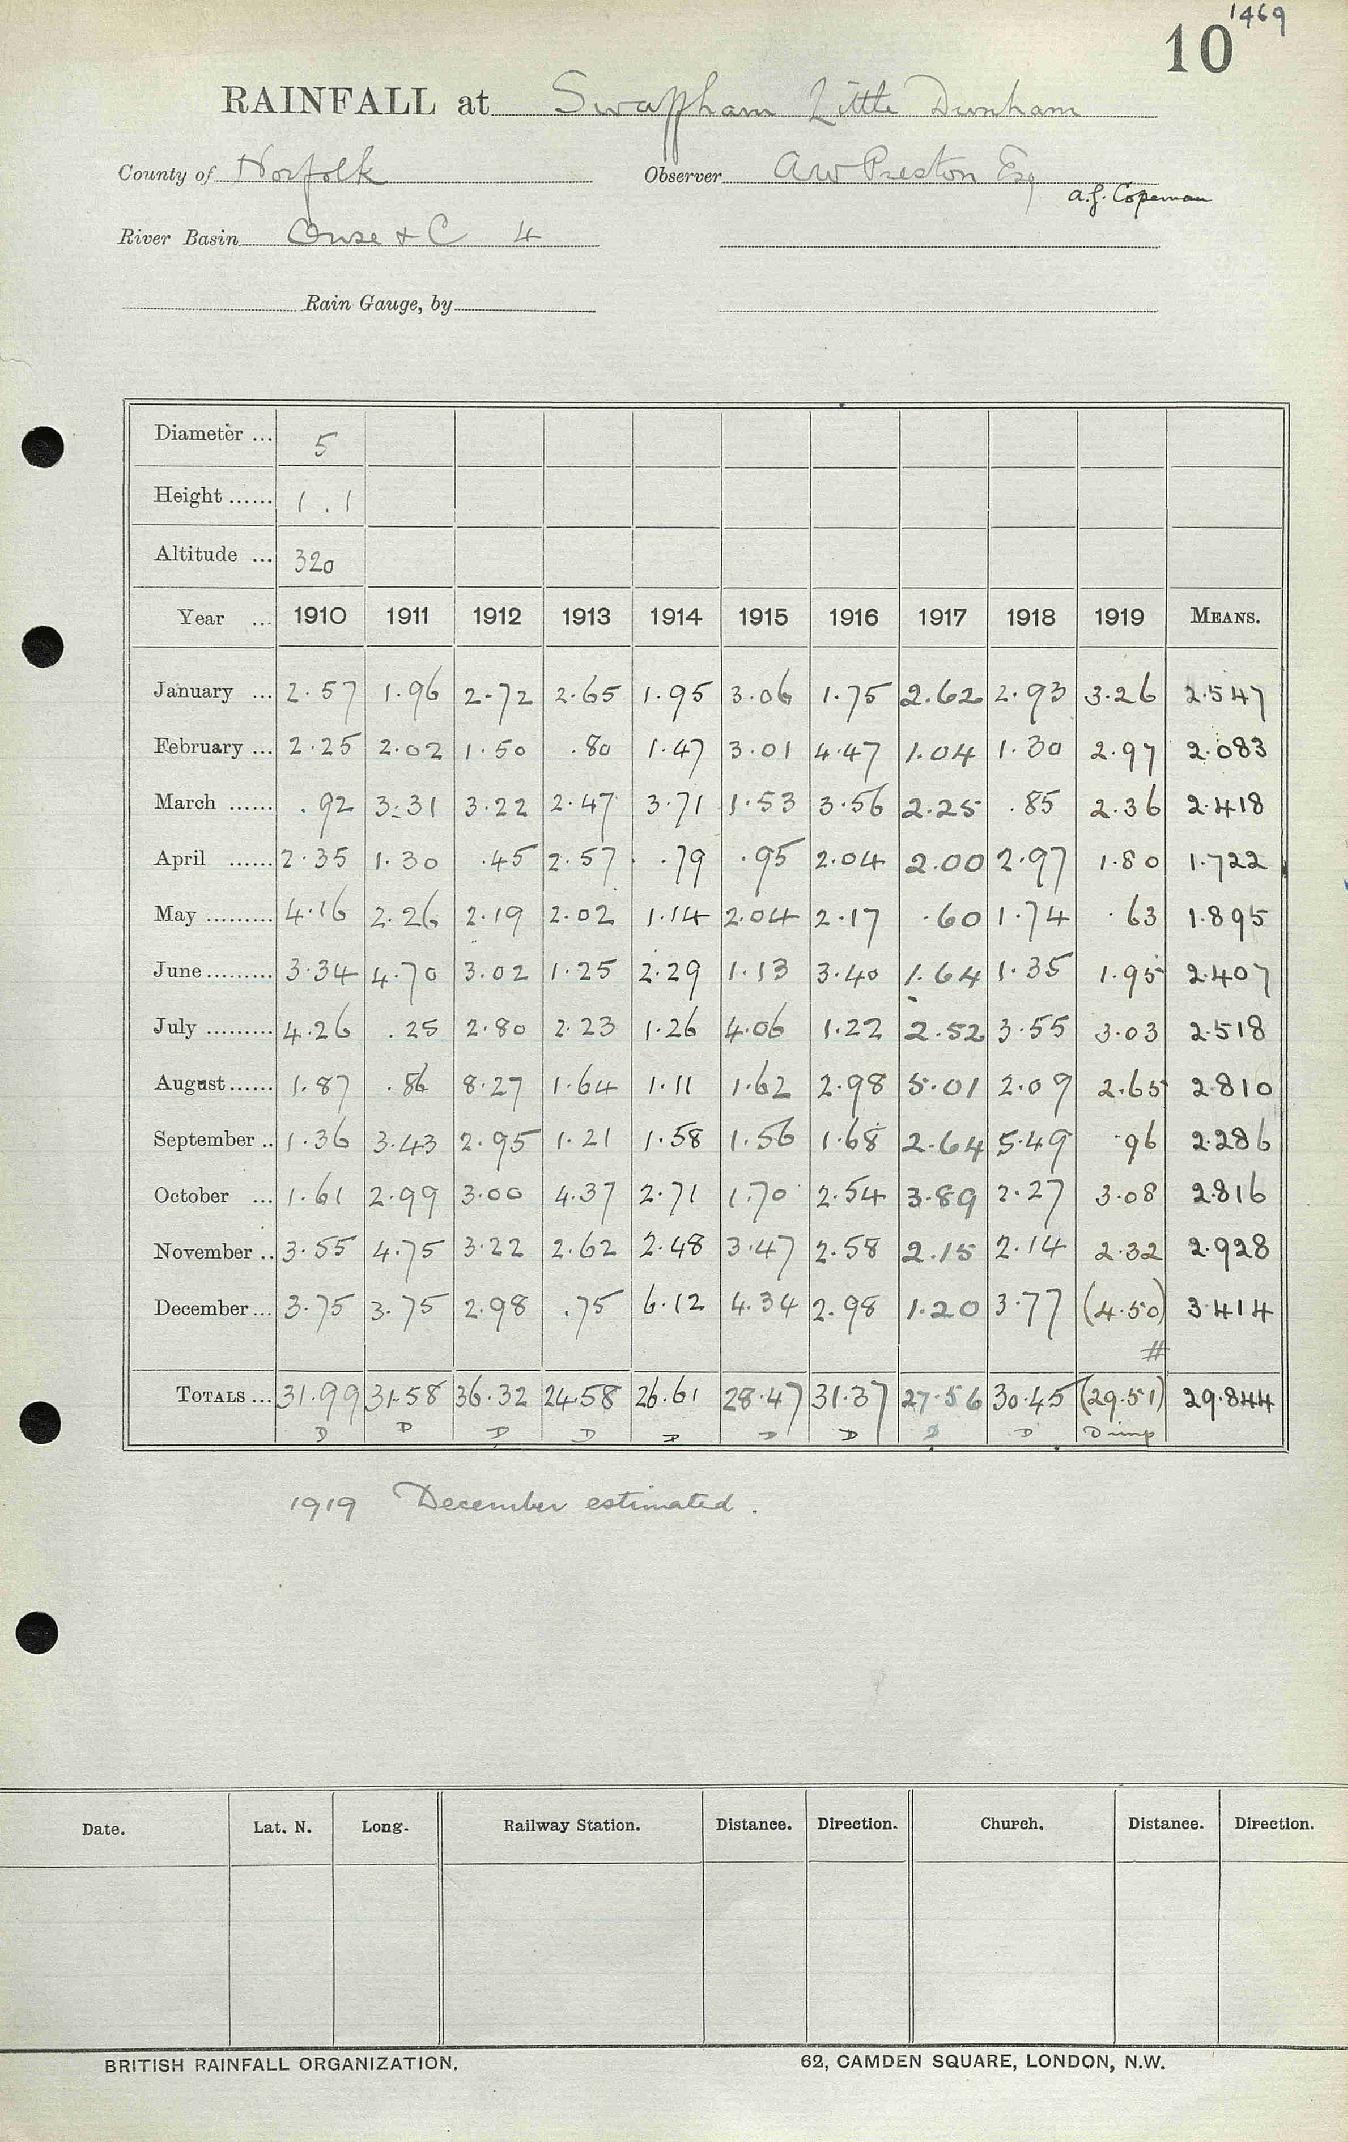 1469
10
RAINFALL at Swaffham Little Dunham
County of Norfolk Observer A W Preston Esq
A. J. Copeman
River Basin Ouse & C 4
Rain Gauge, by
Diameter ... 5
Height ...... 1 . 1
Altitude ... 320
Year ... 1910 1911 1912 1913 1914 1915 1916 1917 1918 1919 MEANS.
January ... 2.57 1.96 2.72 2.65 1.95 3.06 1.75 2.62 2.93 3.26 2.547
February ... 2.25 2.02 1.50 .80 1.47 3.01 4.47 1.04 1.30 2.97 2.083
March ...... .92 3.31 3.22 2.47 3.71 1.53 3.56 2.25 .85 2.36 2.418
April ...... 2.35 1.30 .45 2.57 .79 .95 2.04 2.00 2.97 1.80 1.722
May ......... 4.16 2.26 2.19 2.02 1.14 2.04 2.17 .60 1.74 .63 1.895
June ......... 3.34 4.70 3.02 1.25 2.29 1.13 3.40 1.64 1.35 1.95 2.407
July ......... 4.26 .25 2.80 2.23 1.26 4.06 1.22 2.52 3.55 3.03 2.518
August ...... 1.87 .86 8.27 1.64 1.11 1.62 2.98 5.01 2.09 2.65 2.810
September .. 1.36 3.43 2.95 1.21 1.58 1.56 1.68 2.64 5.49 .96 2.286
October ... 1.61 2.99 3.00 4.37 2.71 1.70 2.54 3.89 2.27 3.08 2.816
November .. 3.55 4.75 3.22 2.62 2.48 3.47 2.58 2.15 2.14 2.32 2.928
December ... 3.75 3.75 2.98 .75 6.12 4.34 2.98 1.20 3.77 (4.50) 3.414
#
TOTALS ... 31.99 31.58 36.32 24.58 26.61 28.47 31.37 27.56 30.45 (29.51) 29.844
D D D D D D D D D D imp
1919 December estimated .
Date. Lat. N. Long. Railway Station. Distance. Direction. Church. Distance. Direction.
BRITISH RAINFALL ORGANIZATION. 62, CAMDEN SQUARE, LONDON, N.W.